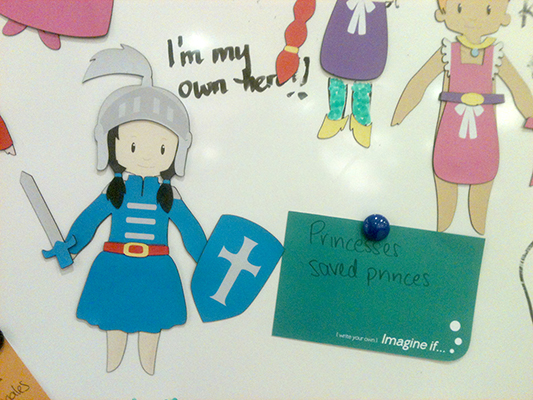 I'm my
own hero!!
Princesses
saved princes
I write your own. Imagine if...